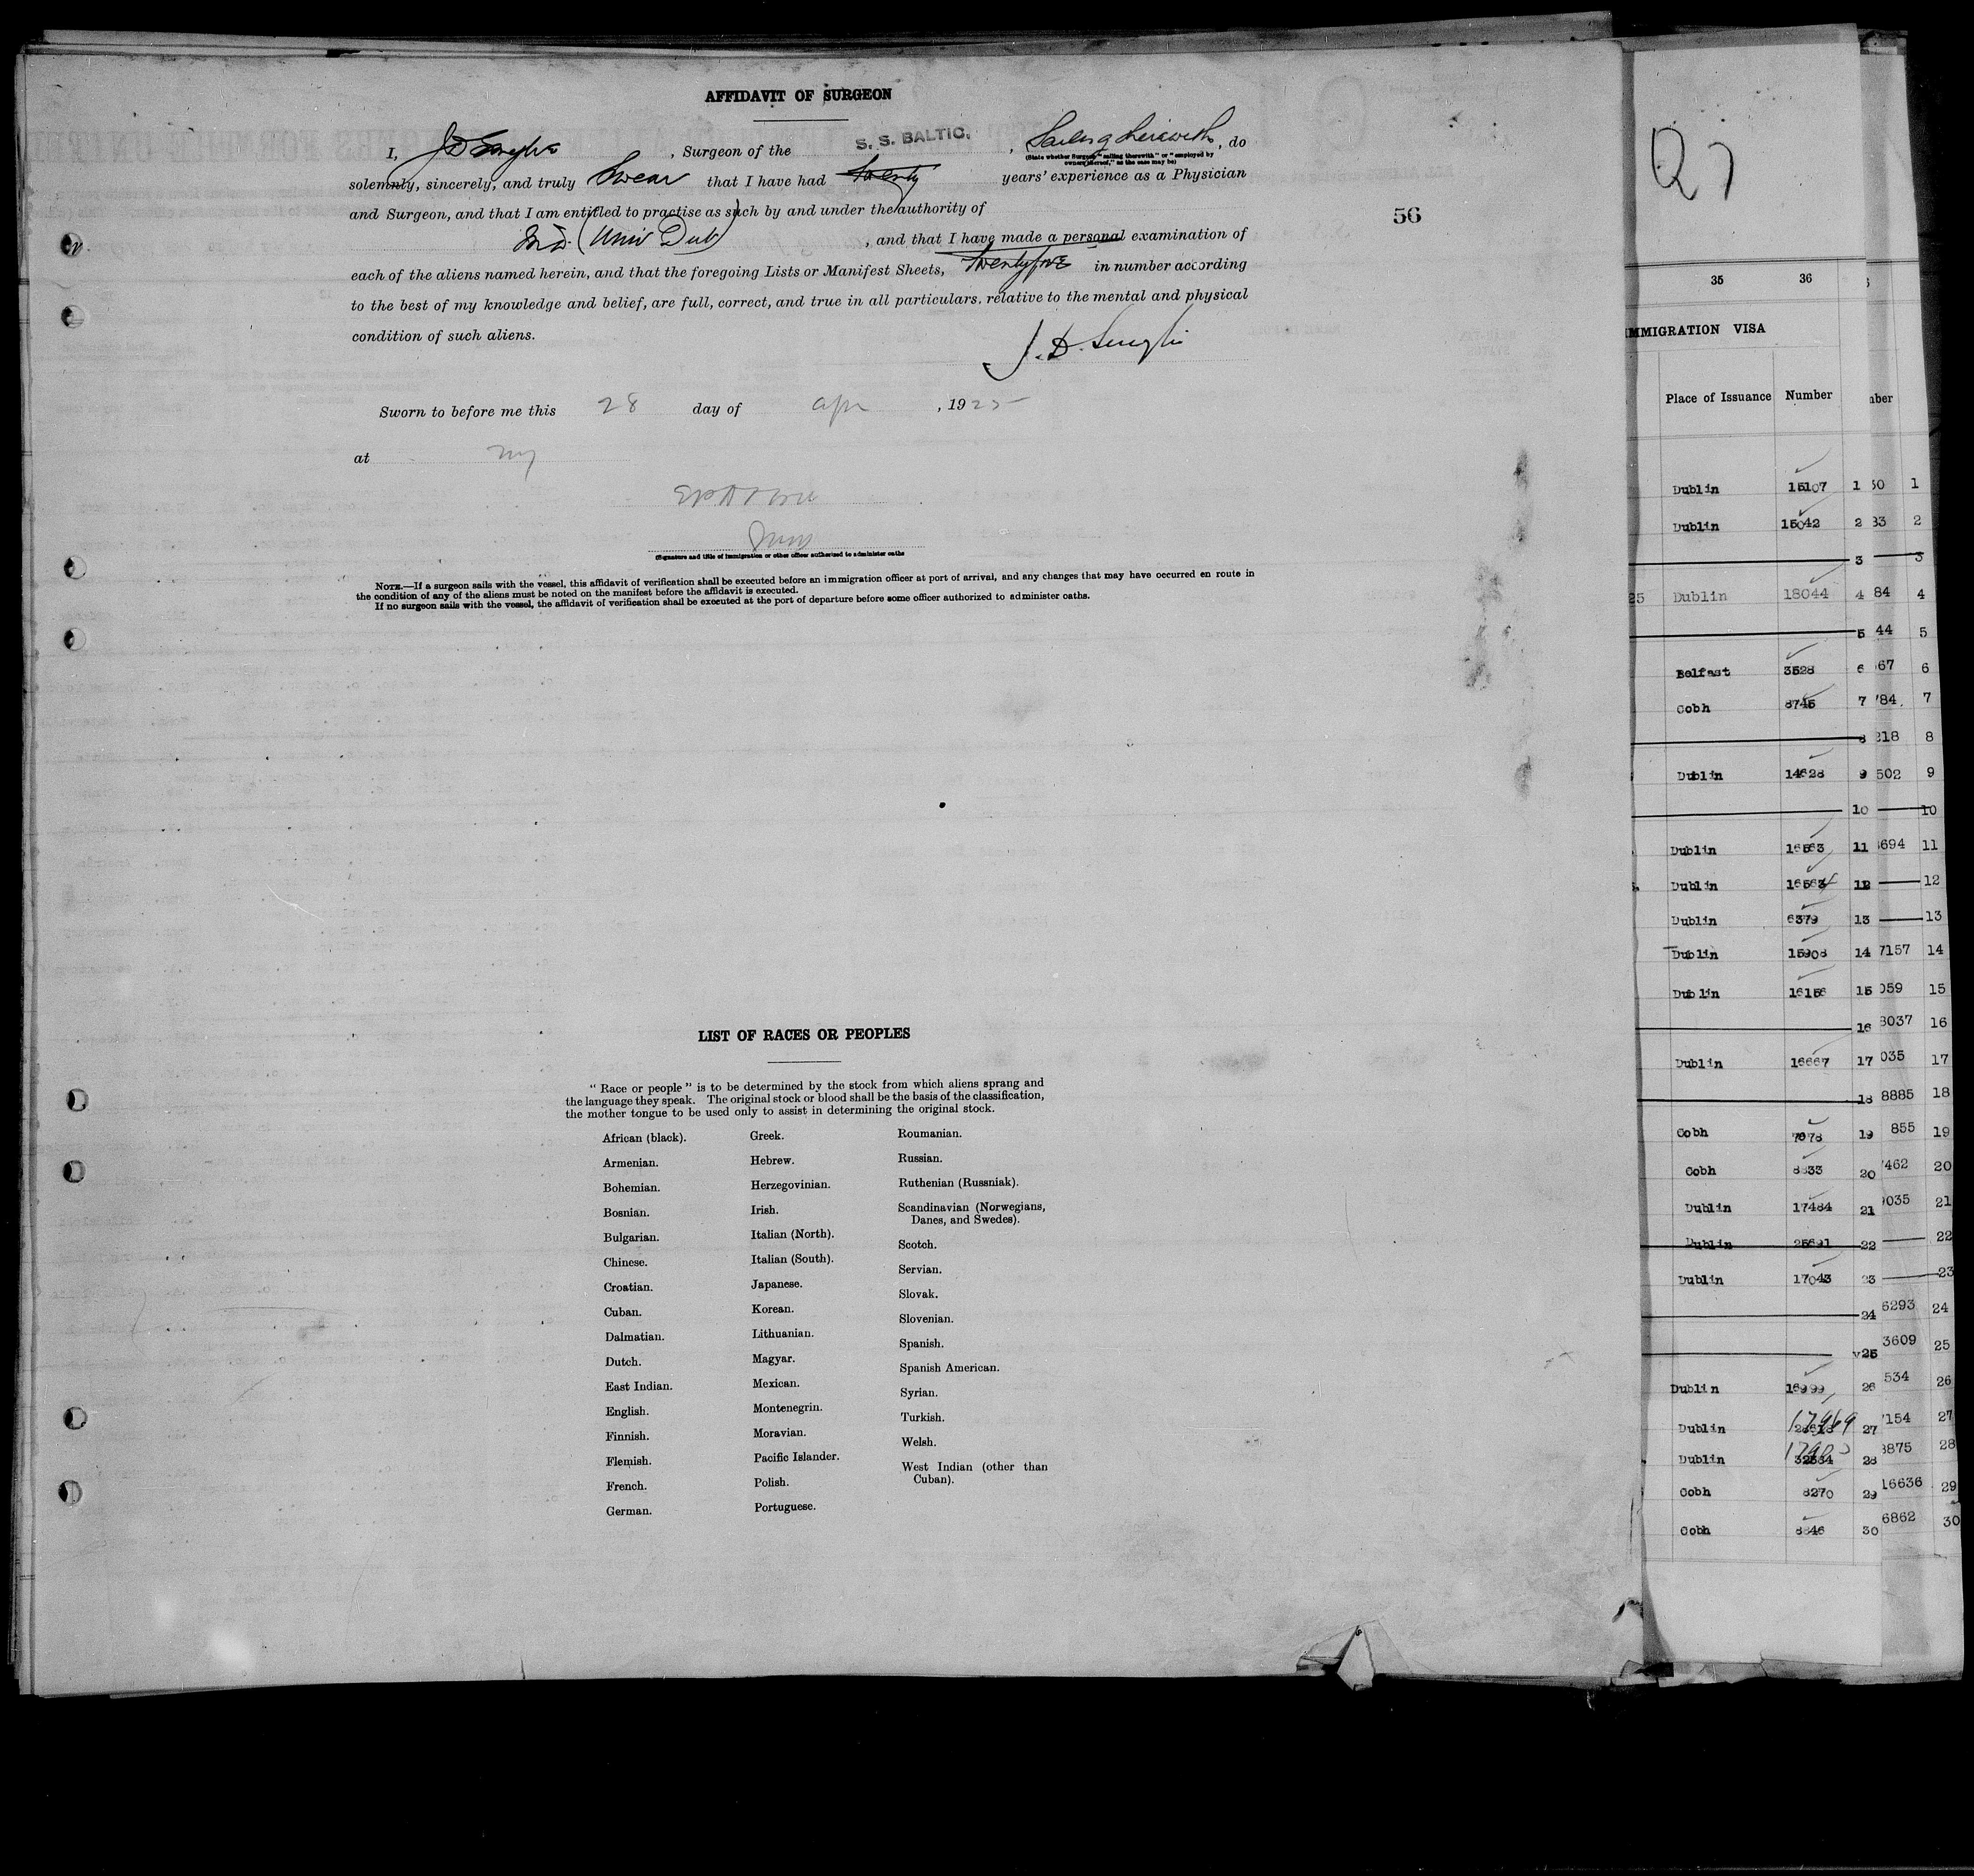 AFFIDAVIT OF SURGEON
I, J D , Surgeon of the S. S. BALTIC. , Sailing therewith , do
(State whether Surgeon "sailing therewith" or "employed by
owners thereof," as the case may be)
solemnly, sincerely, and truly Swear that I have had twenty years' experience as a Physician
and Surgeon, and that I am entitled to practise as such by and under the authority of
56
M.D. (Univ Dub) , and that I have made a personal examination of
each of the aliens named herein, and that the foregoing Lists or Manifest Sheets, twenty five in number according
to the best of my knowledge and belief, are full, correct, and true in all particulars. relative to the mental and physical
condition of such aliens.
J. D.
Sworn to before me this 28 day of apr , 1925
at ny
(Signature and title of immigration or other officer authorized to administer oaths
NOTE.—If a surgeon sails with the vessel, this affidavit of verification shall be executed before an immigration officer at port of arrival, and any changes that may have occurred en route in
the condition of any of the aliens must be noted on the manifest before the affidavit is executed.
If no surgeon sails with the vessel, the affidavit of verification shall be executed at the port of departure before some officer authorized to administer oaths.
LIST OF RACES OR PEOPLES
" Race or people " is to be determined by the stock from which aliens sprang and
the language they speak. The original stock or blood shall be the basis of the classification,
the mother tongue to be used only to assist in determining the original stock.
African (black).
Armenian.
Bohemian.
Bosnian.
Bulgarian.
Chinese.
Croatian.
Cuban.
Dalmatian.
Dutch.
East Indian.
English.
Finnish.
Flemish.
French.
German.
Greek.
Hebrew.
Herzegovinian.
Irish.
Italian (North).
Italian (South).
Japanese.
Korean.
Lithuanian.
Magyar.
Mexican.
Montenegrin.
Moravian.
Pacific Islander.
Polish.
Portuguese.
Roumanian.
Russian.
Ruthenian (Russniak).
Scandinavian (Norwegians,
Danes, and Swedes).
Scotch.
Servian.
Slovak.
Slovenian.
Spanish.
Spanish American.
Syrian.
Turkish.
Welsh.
West Indian (other than
Cuban).
35 36
IMMIGRATION VISA
Place of Issuance Number
Dublin 15107 1 1
Dublin 15042 2 33 2
3 3
25 Dublin 18044 4 84 4
5 44 5
Belfast 3528 6 67 6
Cobh 8745 7 784 7
8 218 8
Dublin 14628 9 502 9
10 10
Dublin 16563 11 694 11
Dublin 12 12
Dublin 6379 13 13
Dublin 15908 14 7157 14
Dublin 16156 15 059 15
16 8037 16
Dublin 16667 17 035 17
18 8885 18
Cobh 7078 19 855 19
Cobh 8833 20 7462 20
Dublin 17484 21 9035 21
Dublin 25691 22 22
Dublin 17043 23 23
24 6293 24
25 3609 25
Dublin 16999 26 534 26
Dublin 27 7154 27
Dublin 28 8875 28
Cobh 8270 29 16636 29
Cobh 8846 30 6862 30